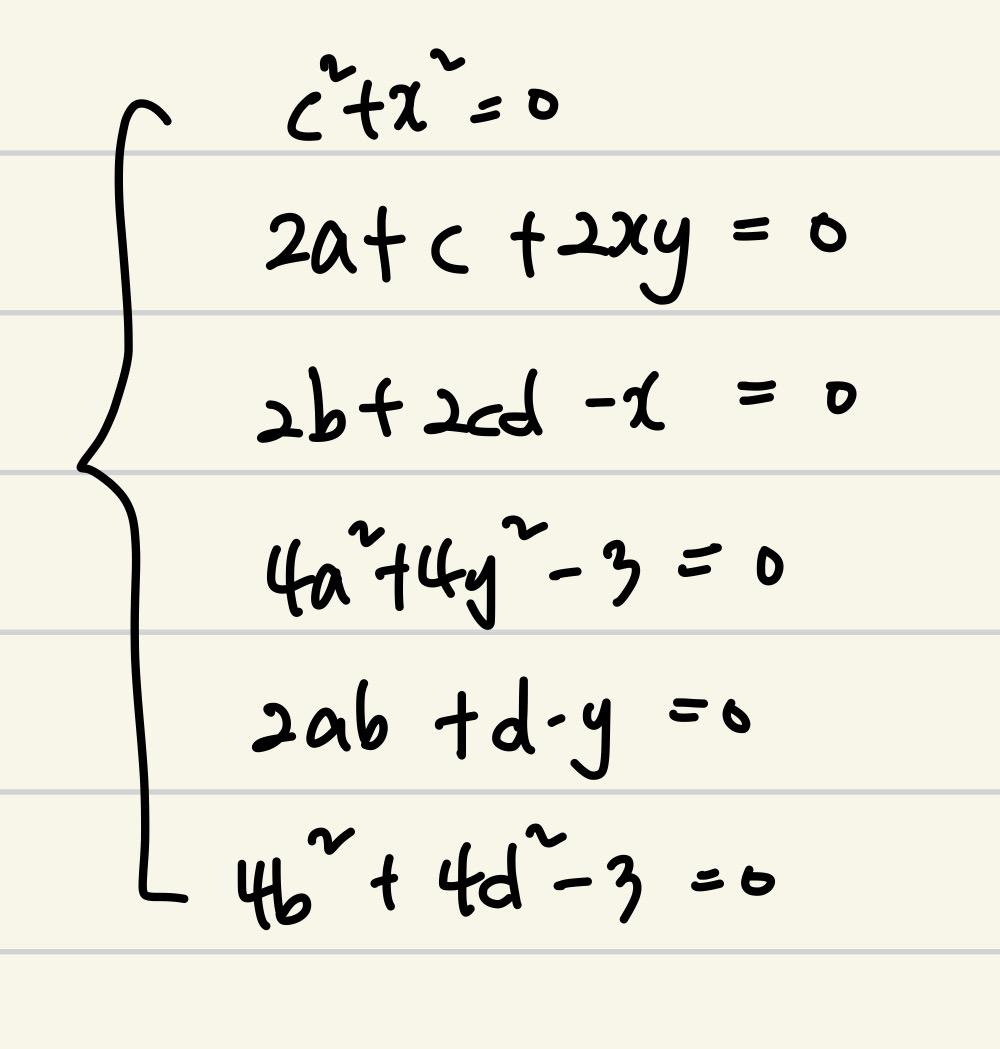 c²+x²=0
2a+c+2xy=0
2b+2cd-x=0
4a²+4y²-3=0
2ab+d-y=0
4b²+4d²-3=0